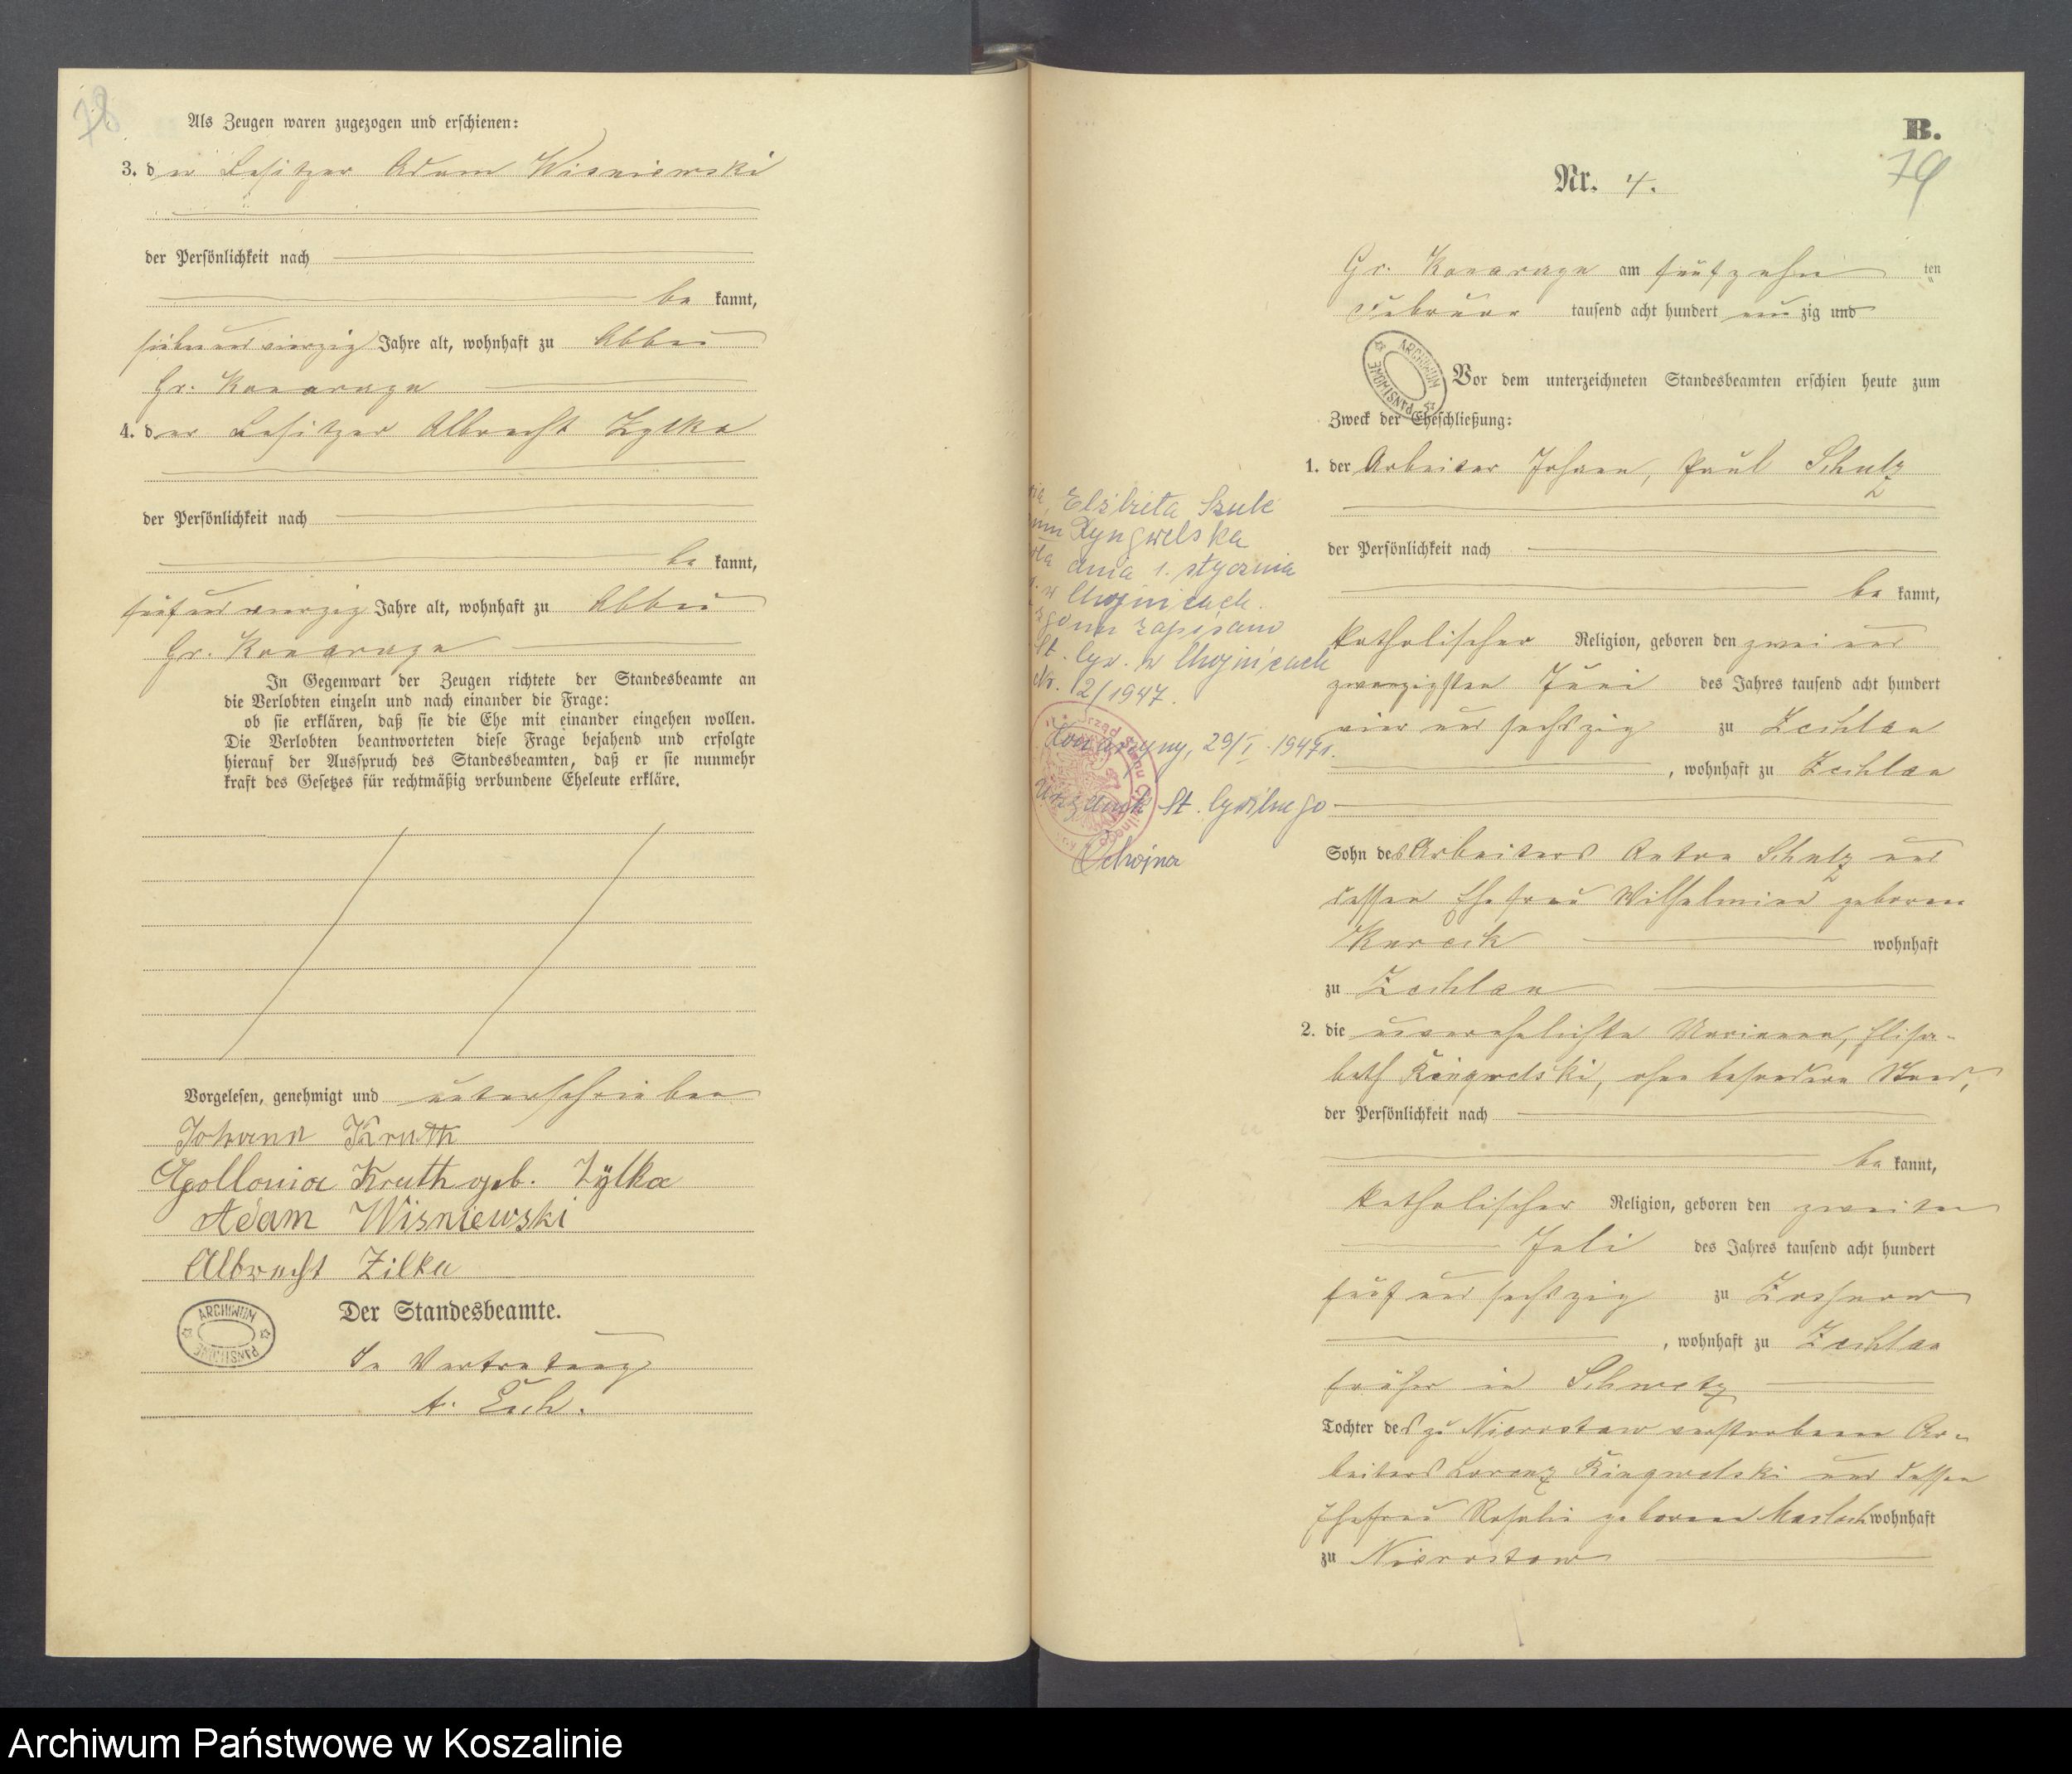 78
Als Zeugen waren zugezogen und erschienen:
3. der Besitzer Adam Wisniewski
der Persönlichkeit nach
be kannt,
siebenundvierzig Jahre alt, wohnhaft zu Abbau
Gr. Konarzyn
4. der Besitzer Albrecht Zylka
der Persönlichkeit nach
be kannt,
fünfundvierzig Jahre alt, wohnhaft zu Abbau
Gr. Konarzyn
In Gegenwart der Zeugen richtete der Standesbeamte an
die Verlobten einzeln und nach einander die Frage:
ob sie erklären, daß sie die Ehe mit einander eingehen wollen.
Die Verlobten beantworteten diese Frage bejahend und erfolgte
hierauf der Ausspruch des Standesbeamten, daß er sie nunmehr
kraft des Gesetzes für rechtmäßig verbundene Eheleute erkläre.
Vorgelesen, genehmigt und unterschrieben
Johann Kruth
Apollonia Kruth geb. Zylka
Adam Wisniewski
Albrecht Zilka
ARCHIWUM PAŃSTWOWE
Der Standesbeamte.
In Vertretung
B.
79
Nr. 4.
Gr. Konarzyn am fünfzehn ten
Februar tausend acht hundert neunzig und
ARCHIWUM PAŃSTWOWE
Vor dem unterzeichneten Standesbeamten erschien heute zum
Zweck der Eheschließung:
1. der Arbeiter Johann, Paul Schulz
der Persönlichkeit nach
be kannt,
katholischer Religion, geboren den zweiund
zwanzigsten Juni des Jahres tausend acht hundert
vier und sechszig zu Zechlau
, wohnhaft zu Zechlau
Sohn des Arbeiters Anton Schulz und
dessen Ehefrau Wilhelmine geborene
wohnhaft
zu Zechlau
2. die unverehelichte Marianna, Elisa-
beth Ringwelski, ohne besonderen Stand,
der Persönlichkeit nach
be kannt,
katholischer Religion, geboren den zweiten
Juli des Jahres tausend acht hundert
fünf und sechszig zu
, wohnhaft zu Zechlau
früher in Schwetz
Tochter des zu Niesrostaw verstorbenen Ar-
beiters Lorenz Ringwelski und dessen
Ehefrau Rosalie geborene wohnhaft
zu Niesrostaw
Elżbieta Szulc
Ryngwelska
dnia 1. stycznia
w Chojnicach.
zgonu zapisano
St. Cyw. w Chojnicach
Nr. 2/1947.
Konarzyny, 29/I. 1947r.
Urzędnik St. Cywilnego
Archiwum Państwowe w Koszalinie